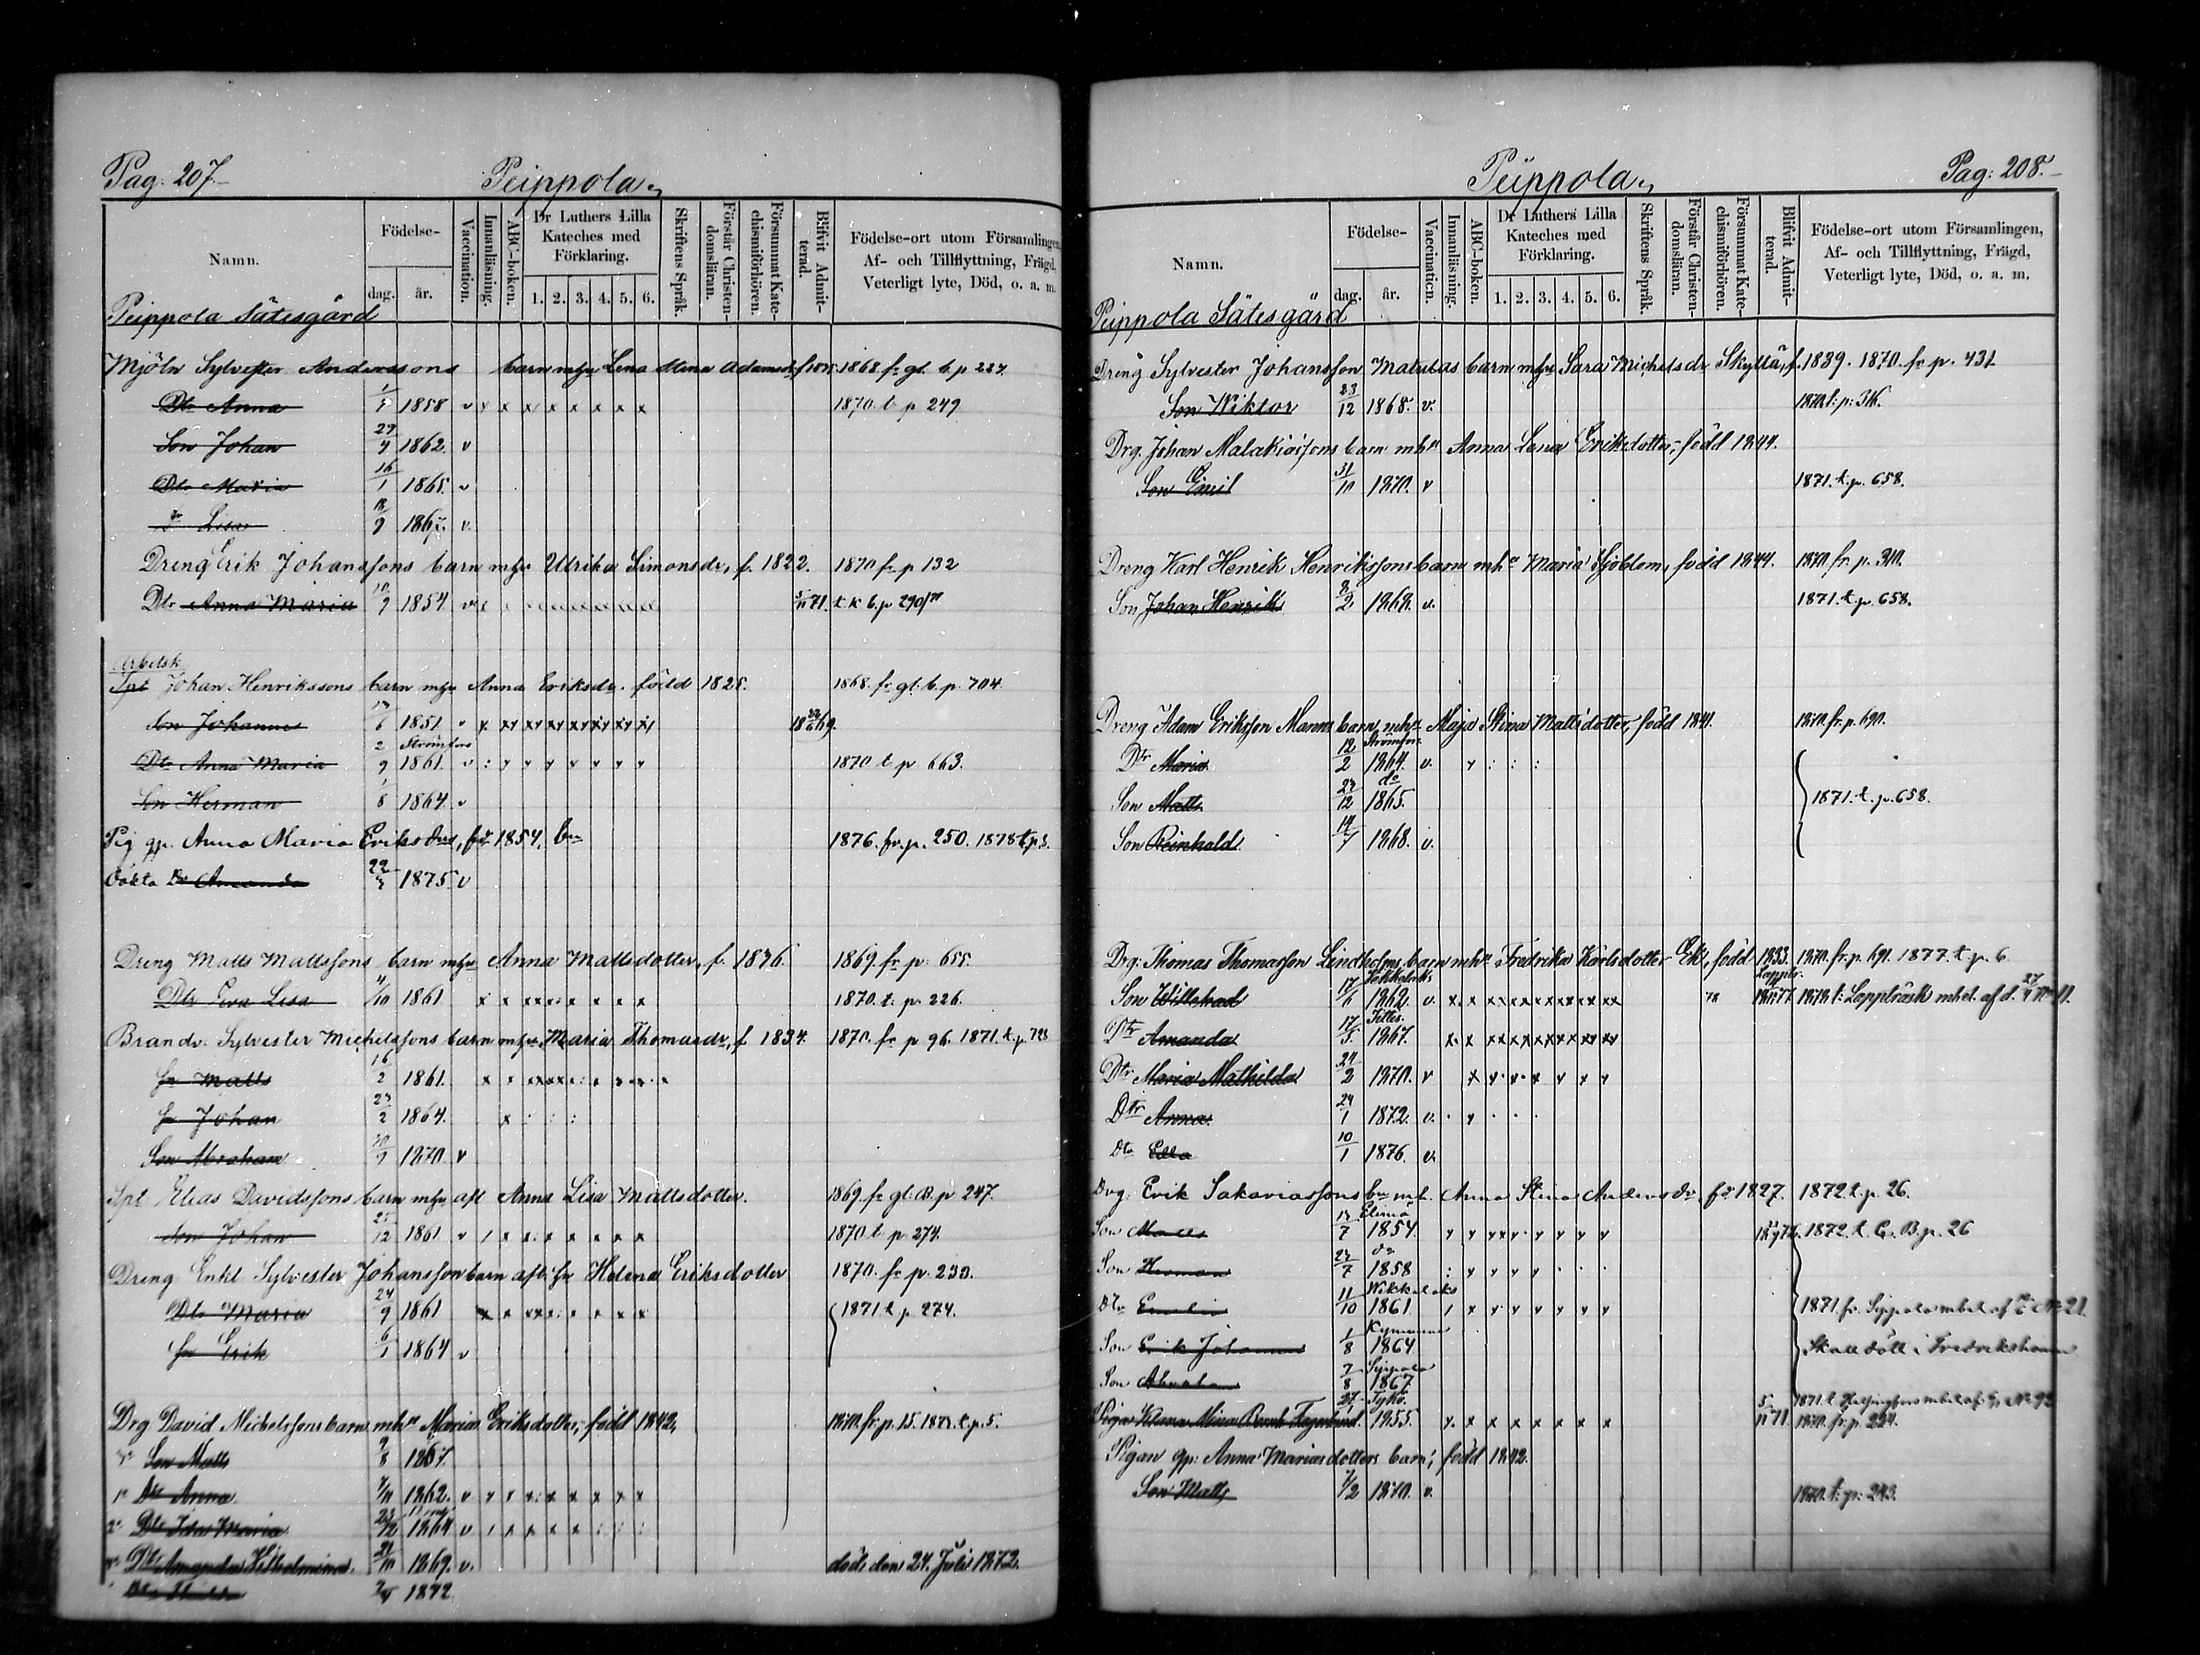 Pag. 207.
Peippola
Namn.
Födelse-
dag.
år.
Vaccination.
Innanläsning.
ABC-boken.
Dr Luthers Lilla Kateches med Förklaring.
1. 2. 3. 4. 5. 6.
Skriftens Språk.
Förstår Christendomsläran.
Försummat Katechismiförhören.
Blifvit Admitterad.
Födelse-ort utom Församlingen,
Af- och Tillflyttning, Frägd,
Veterligt lyte, Död, o. a. m.
Peippola Sätesgård
Mjöln Sylvester Anderssons barn mhu Lena Stina Adamsdr 1868 fr gl. b. p 227
Dtr Anna 1/1 1858 v x x x x x x x x 1870 t. p 249
Son Johan 29/4 1862. v
Dtr Maria 16/1 1865. v
Dr Lisa 18/9 1867. v.
Dreng Erik Johanssons barn mhu Ulrika Simonsdr, f. 1822. 1870 fr p 132
Dtr Anna Maria 10/9 1854. v 5/11 71. t. K b. p 290
Arbetsk
Spt Johan Henrikssons barn mhu Anna Eriksdr. född 1825. 1868. fr gl. b. p. 704
Son Johannes 13/6 1851 v x xx xx xx xx xx xx xx 18 69.
Strömfors
Dtr Anna Maria 2/9 1861. v : x x x x x x 1870 t. p 663.
Son Herman 1/8 1864. v
Pig gp. Anna Maria Eriksdrs, fd 1854, bn 1876. fr. p. 250. 1878 t. p. 5.
oäkta Dr Amanda 22/3 1875. v
Dreng Matts Mattssons barn mhu Anna Mattsdotter, f. 1836. 1869. fr p. 655.
Dtr Eva Lisa 11/10 1861 x x xx x x x x x 1870. t. p. 226.
Brandv. Sylvester Michelssons barn mhu Maria Thomasdr, f 1834. 1870. fr p 96. 1871. t. p. 728
Sn Matts 16/2 1861. x x xx xx x x x x x
Sn Johan 23/2 1864. x : : :
Son Abraham 10/9 1870. v
Spt Elias Davidssons barn mhu afl Anna Lisa Mattsdotter. 1869. fr gl. B. p 247.
Son Johan 25/12 1861 v / x x x x x x x 1870 t. p. 274.
Dreng Enkl Sylvester Johansson barn afl. hu Helena Eriksdotter 1870. fr p. 230.
Dtr Maria 24/9 1861 x x xx x x x x x 1871 t. p. 274.
Sn Erik 6/1 1864 v
Drg David Michelssons barn, mhu Maria Eriksdotter, född 1842, 1870 fr. p. 15. 1873. t. p. 5.
Son Matts 9/8 1867.
1o Dtr Anna 7/11 1862. v x x x x x x x x
2o Dtr Ida Maria 23/12 1864 v / x x x x : : :
Dtr Amanda Wilhelmina. 21/10 1869. v. död den 24. Julii 1872.
1872
Pag: 208.
Peippola
Namn.
Födelse-
dag.
år.
Vaccination.
Innanläsning.
ABC-boken.
Dr Luthers Lilla Kateches med Förklaring.
1. 2. 3. 4. 5. 6.
Skriftens Språk.
Förstår Christendomsläran.
Försummat Katechismiförhören.
Blifvit Admitterad.
Födelse-ort utom Församlingen,
Af- och Tillflyttning, Frägd,
Veterligt lyte, Död, o. a. m.
Peippola Sätesgård
Dreng Sylvester Johansson Matulas barn mhu Sara Michelsdr Skyttä, f. 1839. 1870. fr p. 431
Son Wiktor 23/12 1868. v. 1870. t: p: 316.
Drg. Johan Malakiassons barn mhu Anna Lena Eriksdotter, född 1844.
Son Emil 31/10 1870. v 1871. t. p. 658.
Dreng Karl Henrik Henrikssons barn mhu Maria Sjöblom, född 1844. 1870. fr. p. 310.
Son Johan Henrik 8/2 1868. v. 1871. t. p. 658.
Dreng Adam Eriksson Manns barn, mhu Maja Stina Mattsdotter, född 1841. 1870. fr. p. 690.
Strömfors
Dtr Maria 12/2 1864. v. x : : :
do
Son Matts 23/12 1865. 1871. t. p. 658.
Son Reinhold 14/7 1868. v.
Drg: Thomas Thomasson Lindholms barn mhu Fredrika Karlsdotter Ek, född 1833. 1870. fr. p. 691. 1877. t. p. 6
Son Willehad 17/6 1862. v. x x xx xx xx xx xx xx 1878 t: Lappträsk mbet. af d. 27/4 No 11.
Dtr Amanda 17/5 1867. x x xx xx xx xx xx xx
Dtr Maria Mathilda 24/2 1870. v x x x x x x x
Dtr Anna 24/1 1872. v. · x · · ·
Dtr Edla 10/1 1876. v.
Drg. Erik Sakariassons bn mh. Anna Stina Andersdr, fd 1827. 1872 t. p. 26.
Elimä
Son Matts 13/7 1854. x x xx x x x x x 1872 t. G. B. p. 26
do
Son Herman 23/7 1858 : x x x x · · ·
Wekkelaks
Dtr Emelie 11/10 1861 / x x x x x x x 1871. fr. Sippola mbet. af No 21
Kymmene
Son Erik Johannes 1/8 1864 Skall dött i Fredrikshamn
Sippola
Son Abraham 7/8 1867
Pigan Helena Mina Fagerlund. 27/1 1855. x. x x x x x x x 5/11 71. 1871. t Helsingfors mbet. af No 92
1870. fr. p. 224.
Pigan gp. Anna Mariasdotters barn, född 1842.
Son Matts 7/2 1870. v. 1870. t: p: 243.